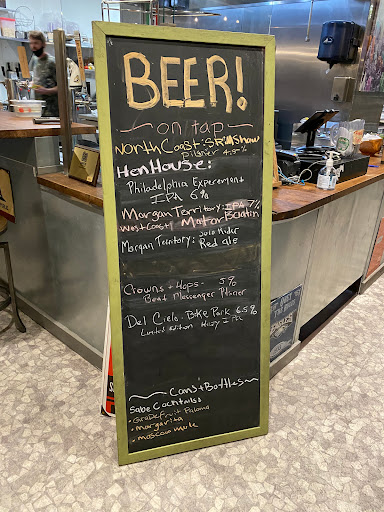 BEER!
on tap
North Coast: Scrimshaw
Pilsner 4.5%
HenHouse:
Philadelphia Expereremynt
IPA 6%
Morgan Territory: IPA 7%
West Coast
Morgan Territory:
Red ale
Crowns + Hops- 5%
Beat Messenger Pilsner
Del Cielo: Bike Park 6.5%
Limited Edition Hazy IPA
Cans + Bottles
Sabe Cocktails
• Grapefruit Paloma
• margarita
• moscow mule